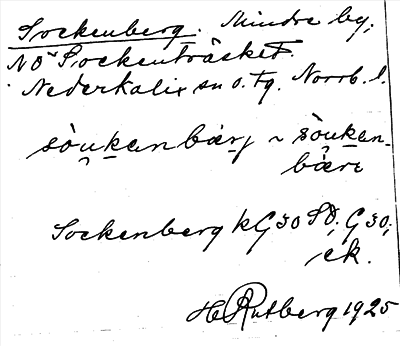 Sockenberg. Mindre by,
NO Sockenträsket.
Nederkalix sn o. tg. Norrb. l.
sòu̯kanbærj ~ sòu̯kan-
bære
Sockenberg kG30 SO; G30;
ek.
H Rutberg 1925